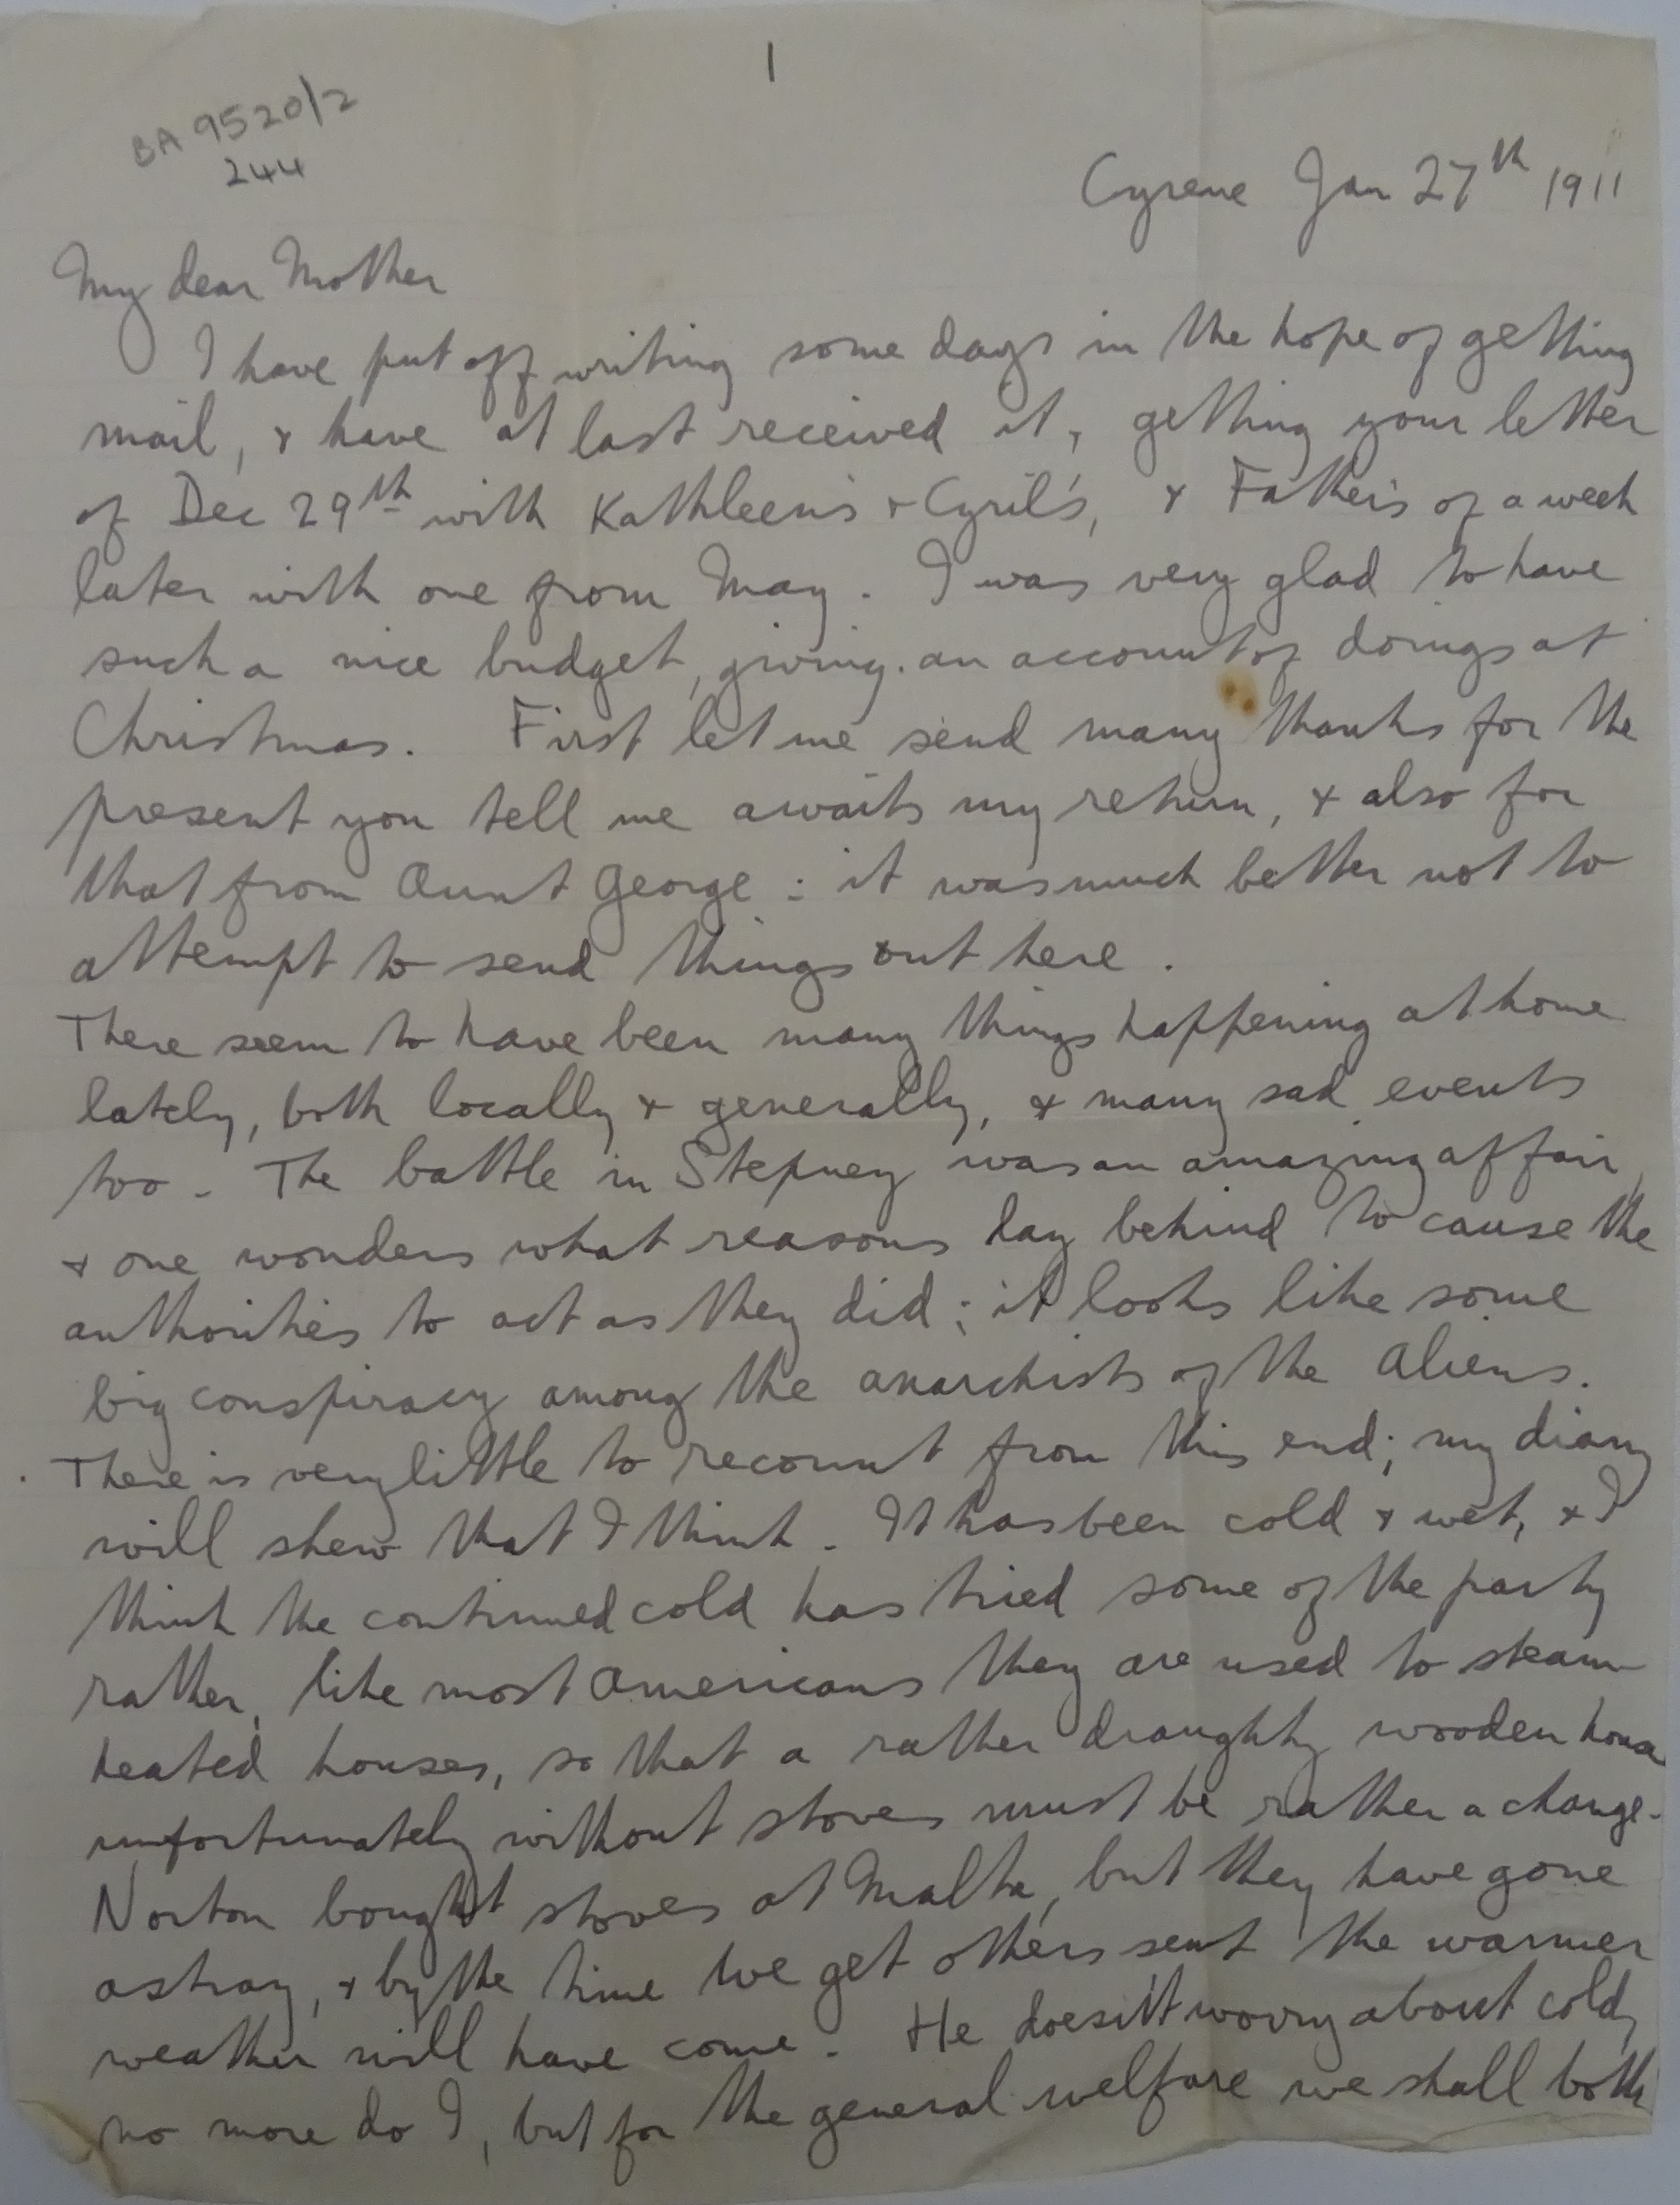 1
BA 9520/2
244
Cyrene Jan 27th 1911
My dear Mother
I have put off writing some days in the hope of getting
mail, & have at last received it, getting your letter
of Dec 29th with Kathleen's & Cyril's, & Father's of a week
later with one from May. I was very glad to have
such a nice budget, giving an account of doings at
Christmas. First let me send many thanks for the
present you tell me awaits my return, & also for
that from Aunt George : it was much better not to
attempt to send things out here.
There seem to have been many things happening at home
lately, both locally & generally, & many sad events
too - The battle in Stepney was an amazing affair,
& one wonders what reasons lay behind to cause the
authorities to act as they did ; it looks like some
big conspiracy among the anarchists of the aliens.
There is very little to recount from this end; my diary
will shew that I think. It has been cold & wet, & I
think the continued cold has tried some of the party
rather, like most Americans they are used to steam-
heated houses, so that a rather draughty wooden house
unfortunately without stoves must be rather a change.
Norton bought stoves at Malta, but they have gone
astray, & by the time we get others sent the warmer
weather will have come. He doesn't worry about cold,
no more do I, but for the general welfare we shall both